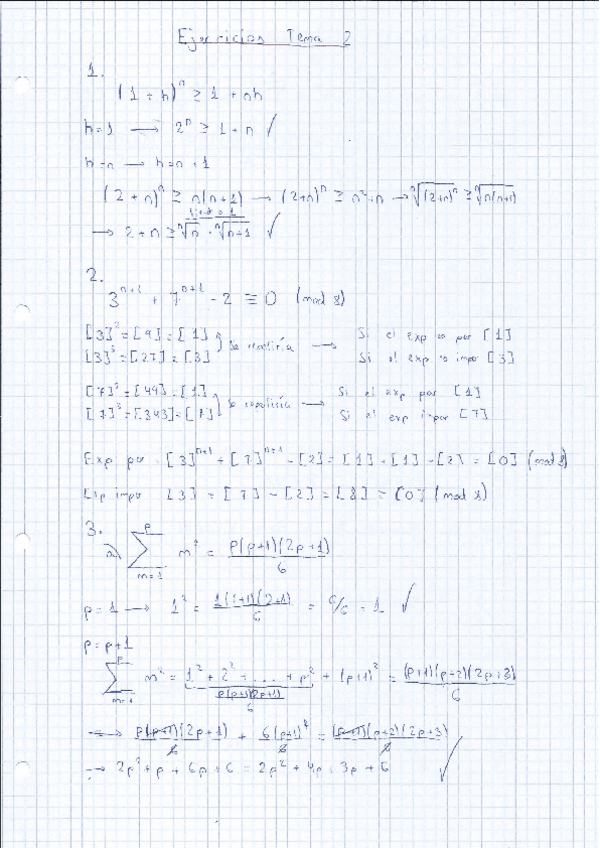 Ejercicios Tema 2
1.
(1 + h)^n ≥ 1 + nh
h=1 → 2^n ≥ 1+n ✓
h=n → h=n+1
(2+n)^n ≥ n(n+1) → (2+n)^n ≥ n²+n → ⁿ√(2+n)^n ≥ ⁿ√n(n+1)
→ 2+n ≥ ⁿ√n · ⁿ√n+1 ✓
2.
3^(n+1) + 7^(n+1) - 2 ≡ 0 (mod 8)
[3]² = [9] = [1] } Se repetiría → Si el exp es par [1]
[3]³ = [27] = [3] Si el exp es impar [3]
[7]² = [49] = [1] } Se repetiría → Si el exp par [1]
[7]³ = [343] = [7] Si el exp impar [7]
Exp par [3]^(n+1) + [7]^(n+1) - [2] = [1] + [1] - [2] = [0] (mod 8)
Exp impar [3] + [7] - [2] = [8] = [0] (mod 8)
3.
a) ∑_(m=1)^p m² = p(p+1)(2p+1)/6
p=1 → 1² = 1(1+1)(2+1)/6 = 6/6 = 1 ✓
p=p+1
∑_(m=1)^p m² = 1² + 2² + ... + p² + (p+1)² = (p+1)(p+2)(2p+3)/6
p(p+1)(2p+1)/6
→ p(p+1)(2p+1)/6 + 6(p+1)²/6 = (p+1)(p+2)(2p+3)/6
→ 2p²+p + 6p+6 = 2p² + 4p + 3p + 6 ✓